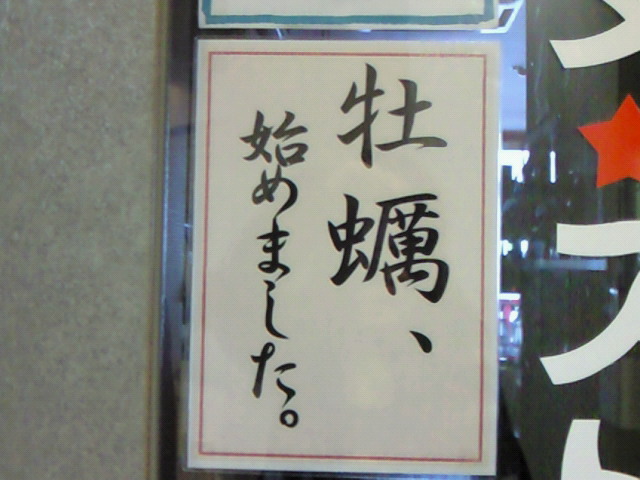 牡蠣、
始めました。